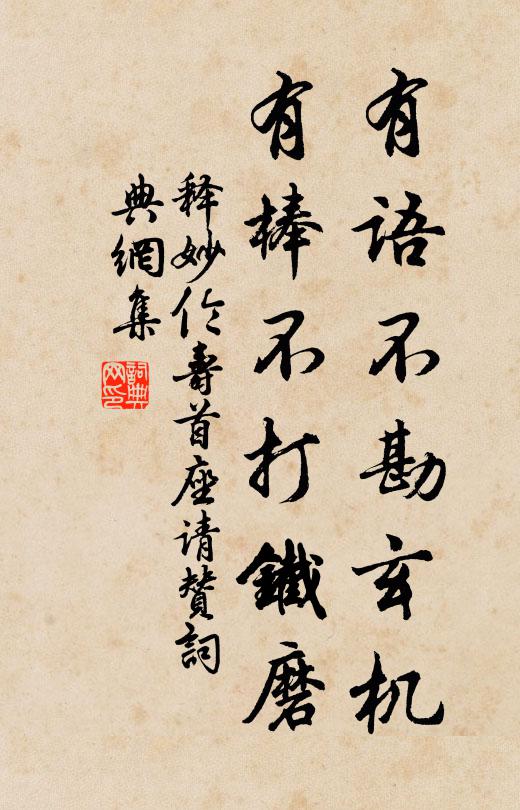 有语不勘玄机
有棒不打鐵磨
释妙伦寿首座请赞詞
典網集
詞典网印